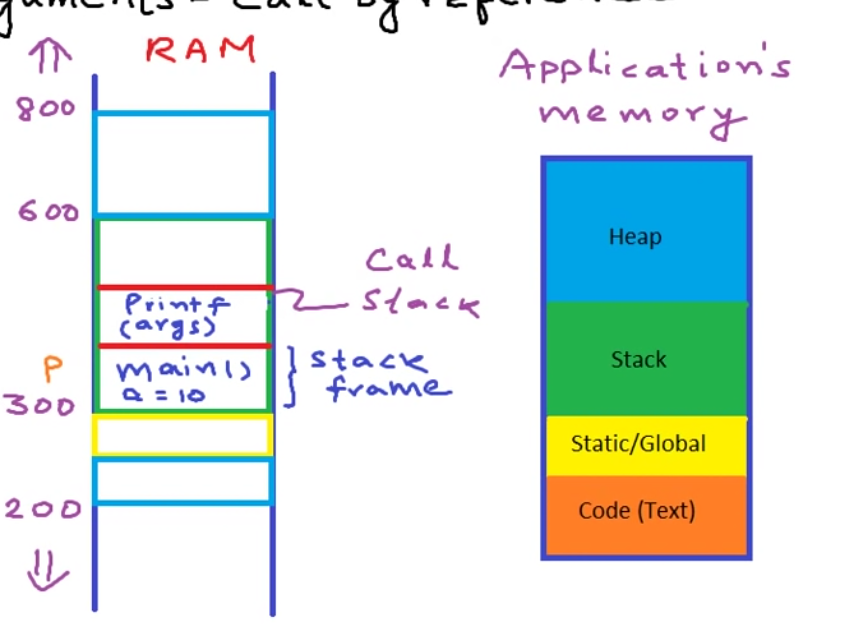 guments - Call by refere
RAM
800
600
Printf
(args)
main()
a = 10
P
300
200
Call
Stack
stack
frame
Application's
memory
Heap
Stack
Static/Global
Code (Text)